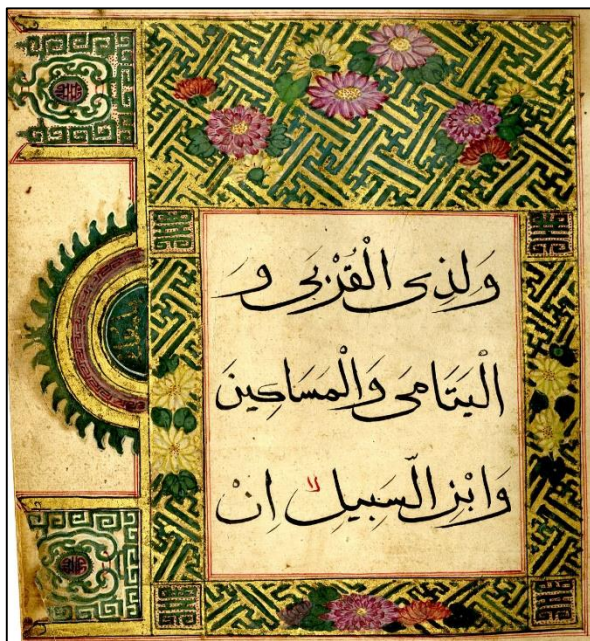 وَلِذِى الْقُرْبَى وَ
الْيَتَامَى وَالْمَسَاكِينَ
وَابْنِ السَّبِيلِ لا اِنْ